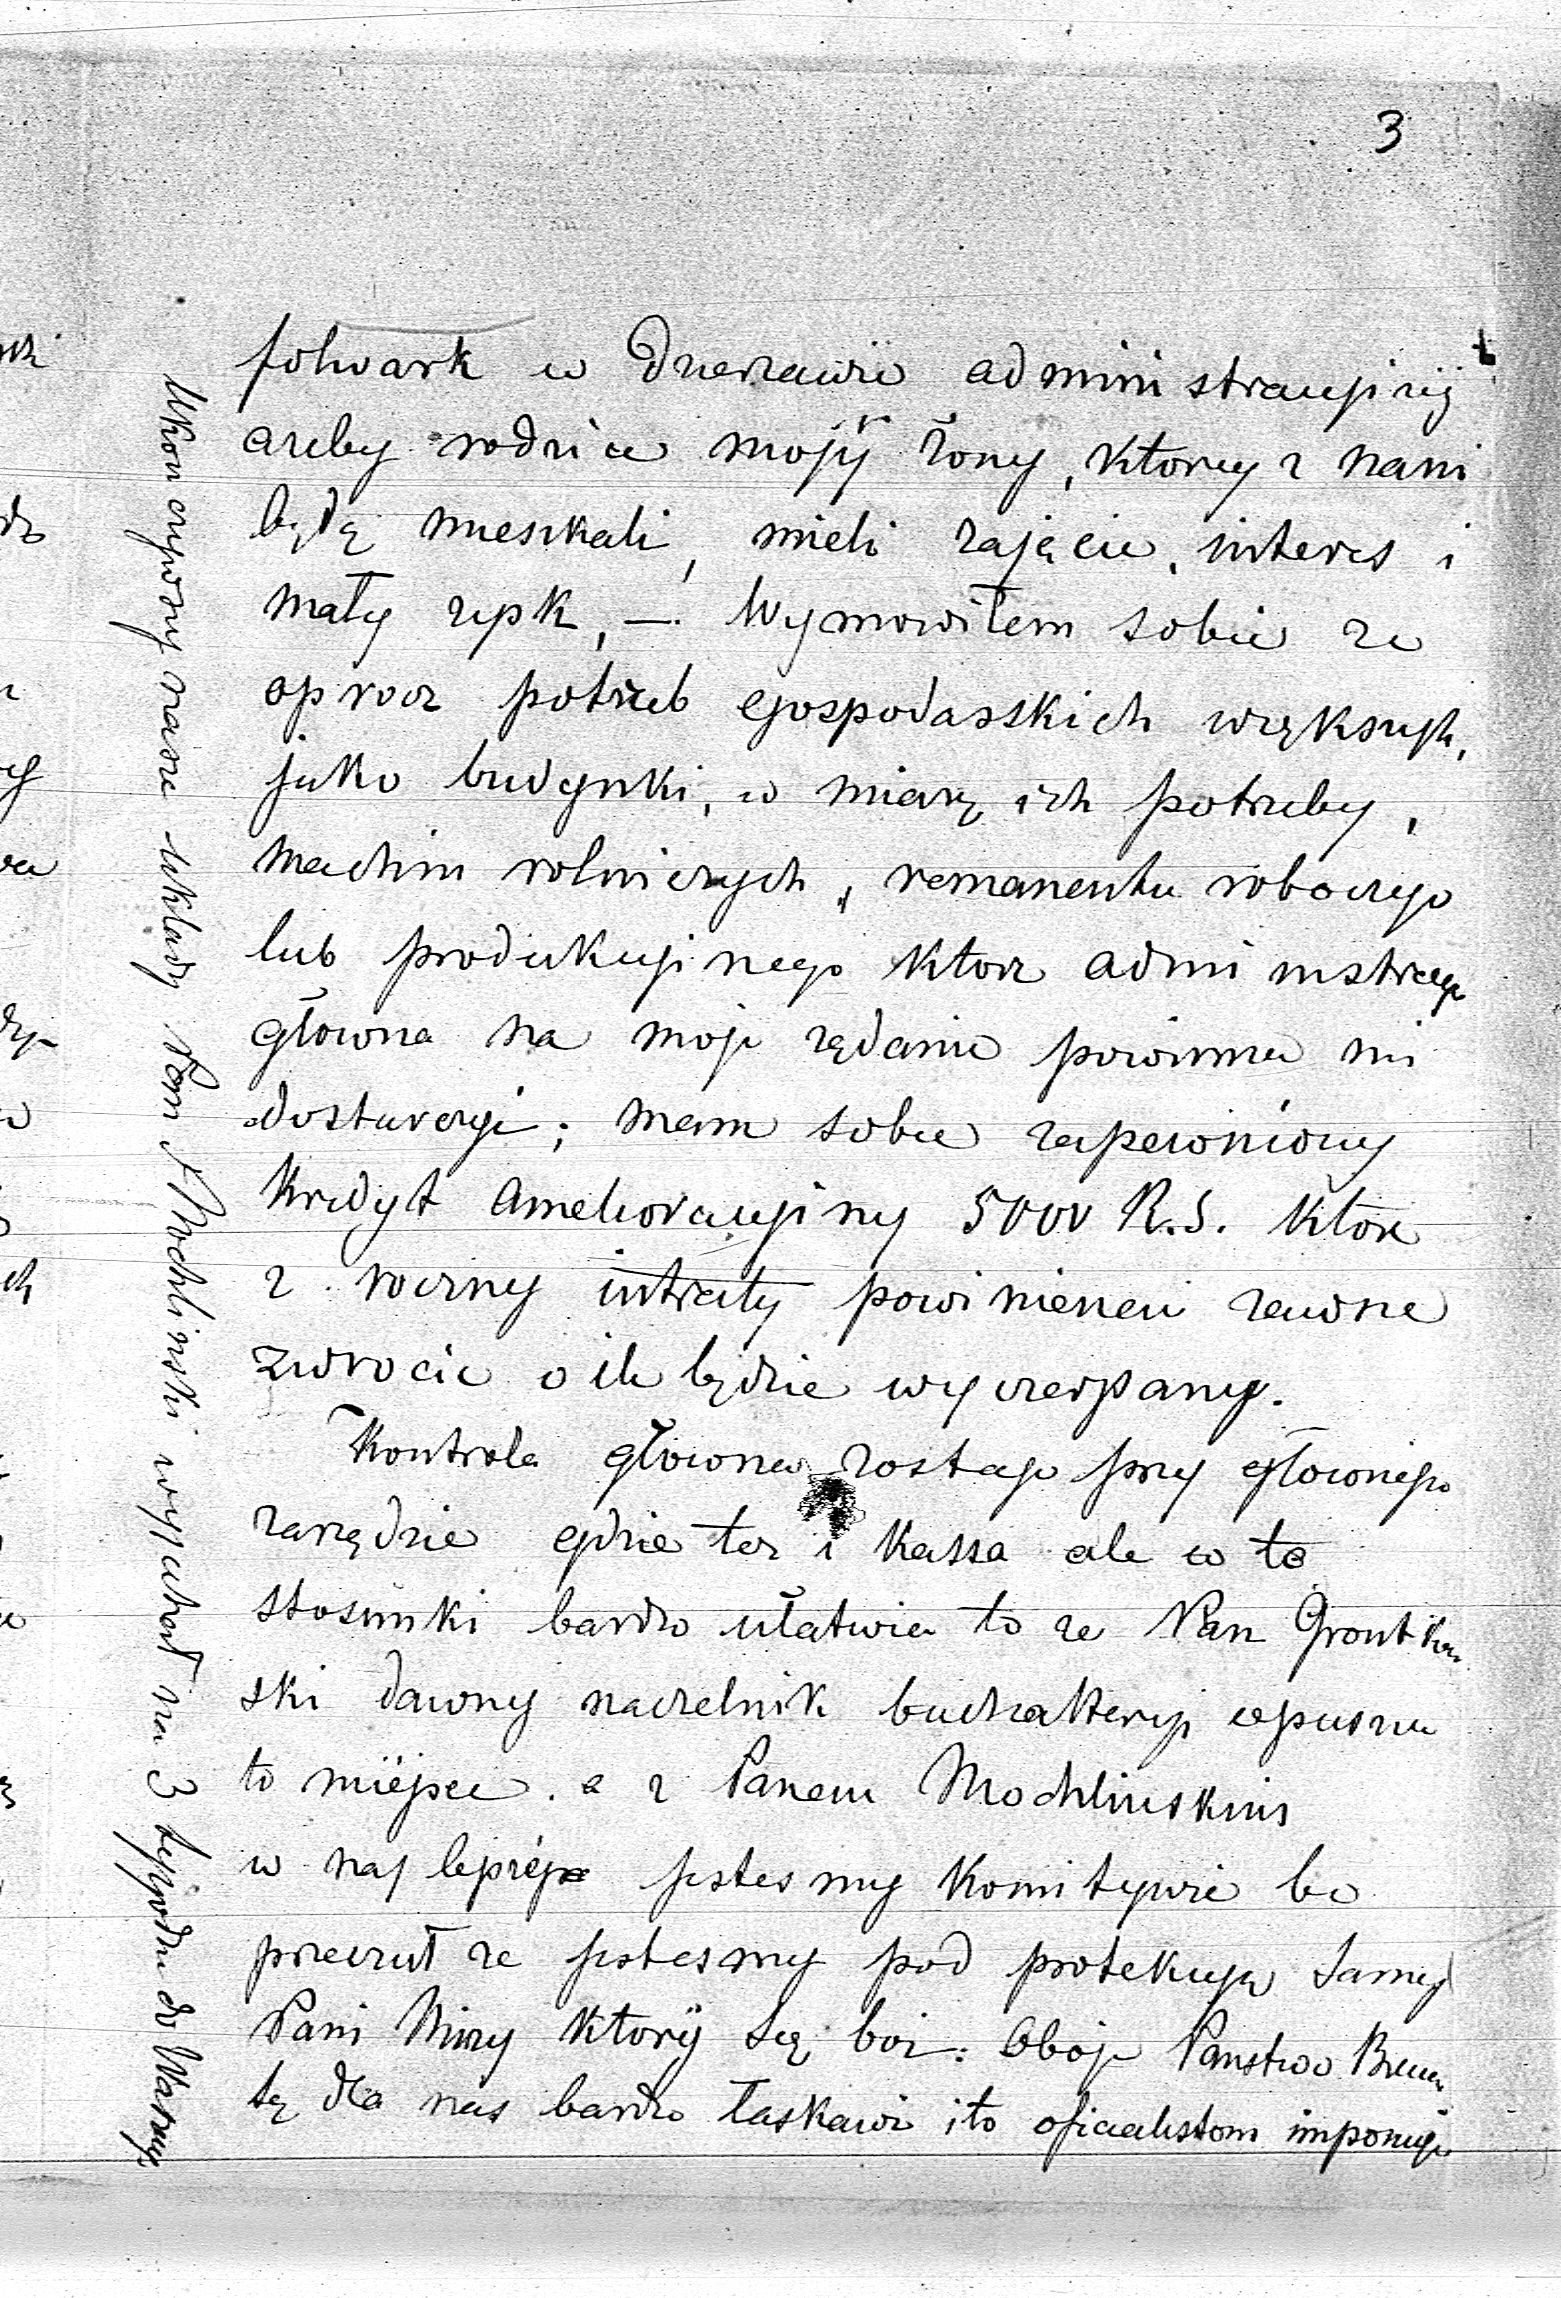 3
folwark w Dzierzawie administracyjnéj
azeby rodzice mojéj żony, którzy z nami
będą mieszkali, mieli zajęcie, interes i
mały zysk, — Wymowiłem sobie ze
oprocz potrzeb gospodarskich większych,
jako budynki, w miarę ich potrzeby,
machin rolniczych, remanentu roboczego
lub produkcyjnego ktore administracja
głowna na moje ządanie powinna mi
dostarczyć; mam sobie zapewniony
Kredyt amelioracyjny 5000 R.S. ktore
z roczny intraty powinienem zawsze
zwrocic o ile będzie wyczerpany.
Kontrola głowna zostaje przy głownego
zarządzie gdzie tez i Kassa ale w te
stosunki bardzo ułatwia to ze Pan Grontkow
ski dawny naczelnik buchalteryi opuszcza
to miéjsce. a z Panem Mochlinskim
w naj lepszéj jestesmy Komitywie bo
przeczuł ze jestesmy pod protekcyą samej
Pani Niny któréj się boi. Oboje Panstwo
są dla nas bardzo łaskawi i to oficialistom imponuje
Ukonczywszy nasze układy Pan Mochlinski wyjechał na 3 tygodnie do Warszawy